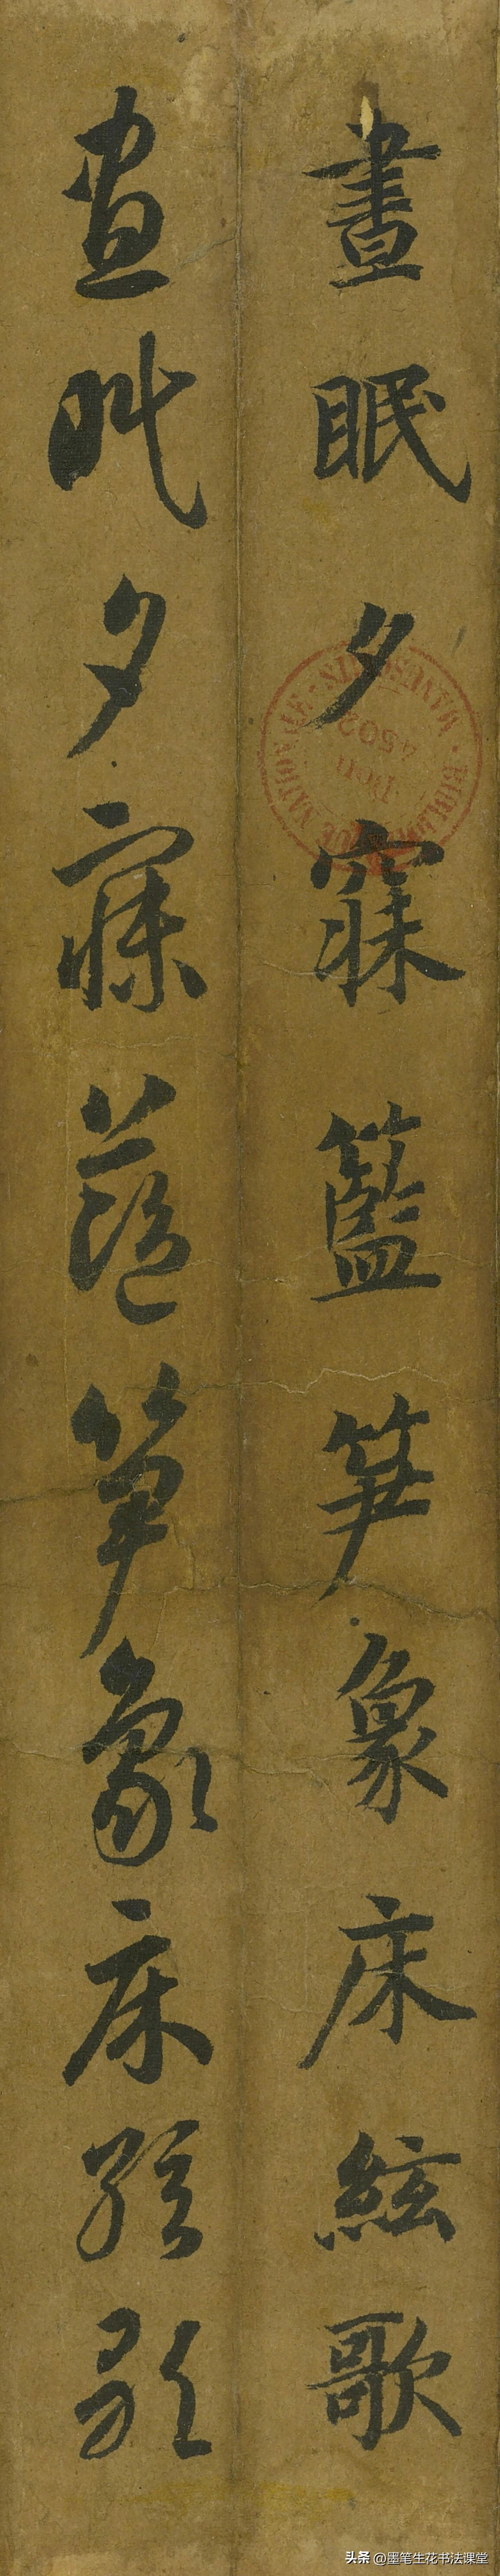 晝眠夕寐籃笋象床絃歌
晝眠夕寐藍笋象床絃歌
BIBLIOTHEQUE NATIONALE · MANUSCRITS ·
Don
4502
头条 @墨笔生花书法课堂